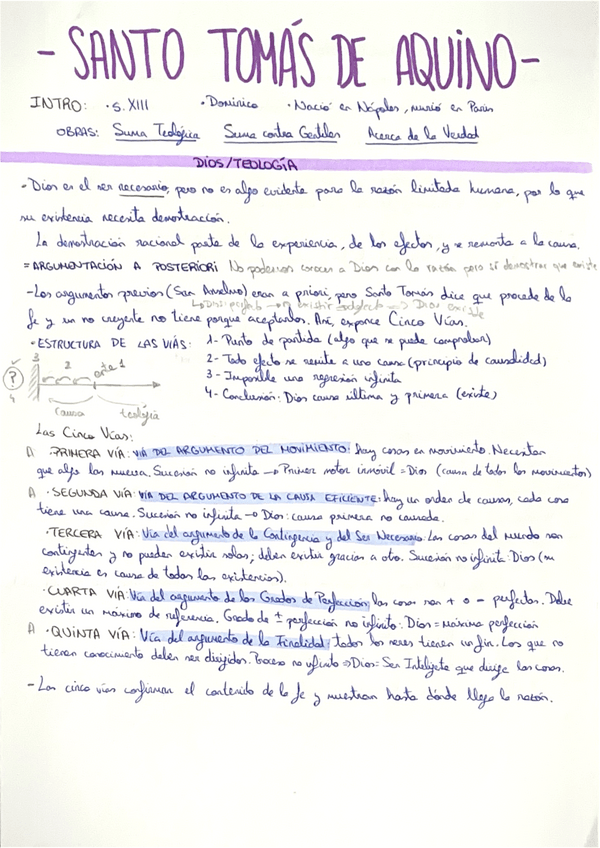 - SANTO TOMÁS DE AQUINO -
INTRO: · s. XIII · Dominico · Nació en Nápoles, murió en París
OBRAS: Suma Teológica Suma contra Gentiles Acerca de la Verdad
DIOS/TEOLOGÍA
- Dios es el ser necesario, pero no es algo evidente para la razón limitada humana, por lo que
su existencia necesita demostración.
La demostración racional parte de la experiencia, de los efectos, y se remonta a la causa.
= ARGUMENTACIÓN A POSTERIORI No podemos conocer a Dios con la razón pero sí demostrar que existe
- Los argumentos previos (San Anselmo) eran a priori, pero Santo Tomás dice que procede de la
Dios existe
fe y un no creyente no tiene porque aceptarlos. Así, expone Cinco Vías.
· ESTRUCTURA DE LAS VÍAS: 1- Punto de partida (algo que se puede comprobar)
2- Todo efecto se remite a una causa (principio de causalidad)
3- Imposible una regresión infinita
4- Conclusión: Dios causa última y primera (existe)
3 2 este 1
?
4
causa teología
Las Cinco Vías:
A · PRIMERA VÍA: VÍA DEL ARGUMENTO DEL MOVIMIENTO: hay cosas en movimiento. Necesitan
que algo las mueva. Sucesión no infinita → Primer motor inmóvil = Dios (causa de todos los movimientos)
A · SEGUNDA VÍA: VÍA DEL ARGUMENTO DE LA CAUSA EFICIENTE: hay un orden de causas, cada cosa
tiene una causa. Sucesión no infinita → Dios: causa primera no causada.
· TERCERA VÍA: Vía del argumento de la Contingencia y del Ser Necesario: Las cosas del mundo son
contingentes y no pueden existir solas; deben existir gracias a otro. Sucesión no infinita: Dios (su
existencia es causa de todas las existencias).
· CUARTA VÍA: Vía del argumento de los Grados de Perfección: las cosas son + o - perfectas. Debe
existir un máximo de referencia. Grado de ± perfección no infinito: Dios = máxima perfección
A · QUINTA VÍA: Vía del argumento de la Finalidad: todos los seres tienen un fin. Los que no
tienen conocimiento deben ser dirigidos. Proceso no infinito ⇒ Dios = Ser Inteligente que dirige las cosas.
- Las cinco vías confirman el contenido de la fe y muestran hasta dónde llega la razón.